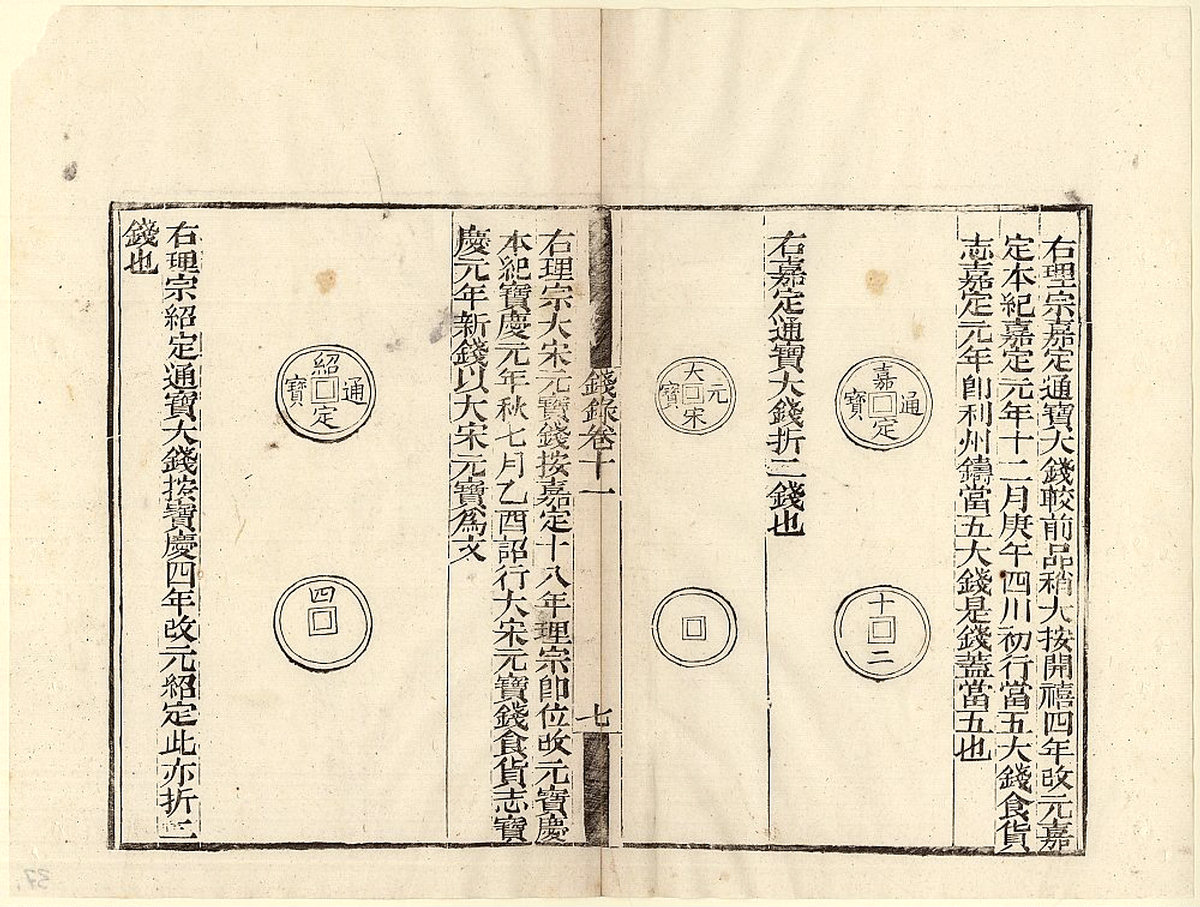 右理宗嘉定通寶大錢較前品稍大按開禧四年改元嘉
定本紀嘉定元年十二月庚午四川初行當五大錢食貨
志嘉定元年卽利州鑄當五大錢是錢蓋當五也
嘉定通寶
十二
右嘉定通寶大錢折二錢也
大宋元寶
錢錄卷十一
七
右理宗大宋元寶錢按嘉定十八年理宗卽位改元寶慶
本紀寶慶元年秋七月乙酉詔行大宋元寶錢食貨志寶
慶元年新錢以大宋元寶爲文
紹定通寶
四
右理宗紹定通寶大錢按寶慶四年改元紹定此亦折二
錢也
37